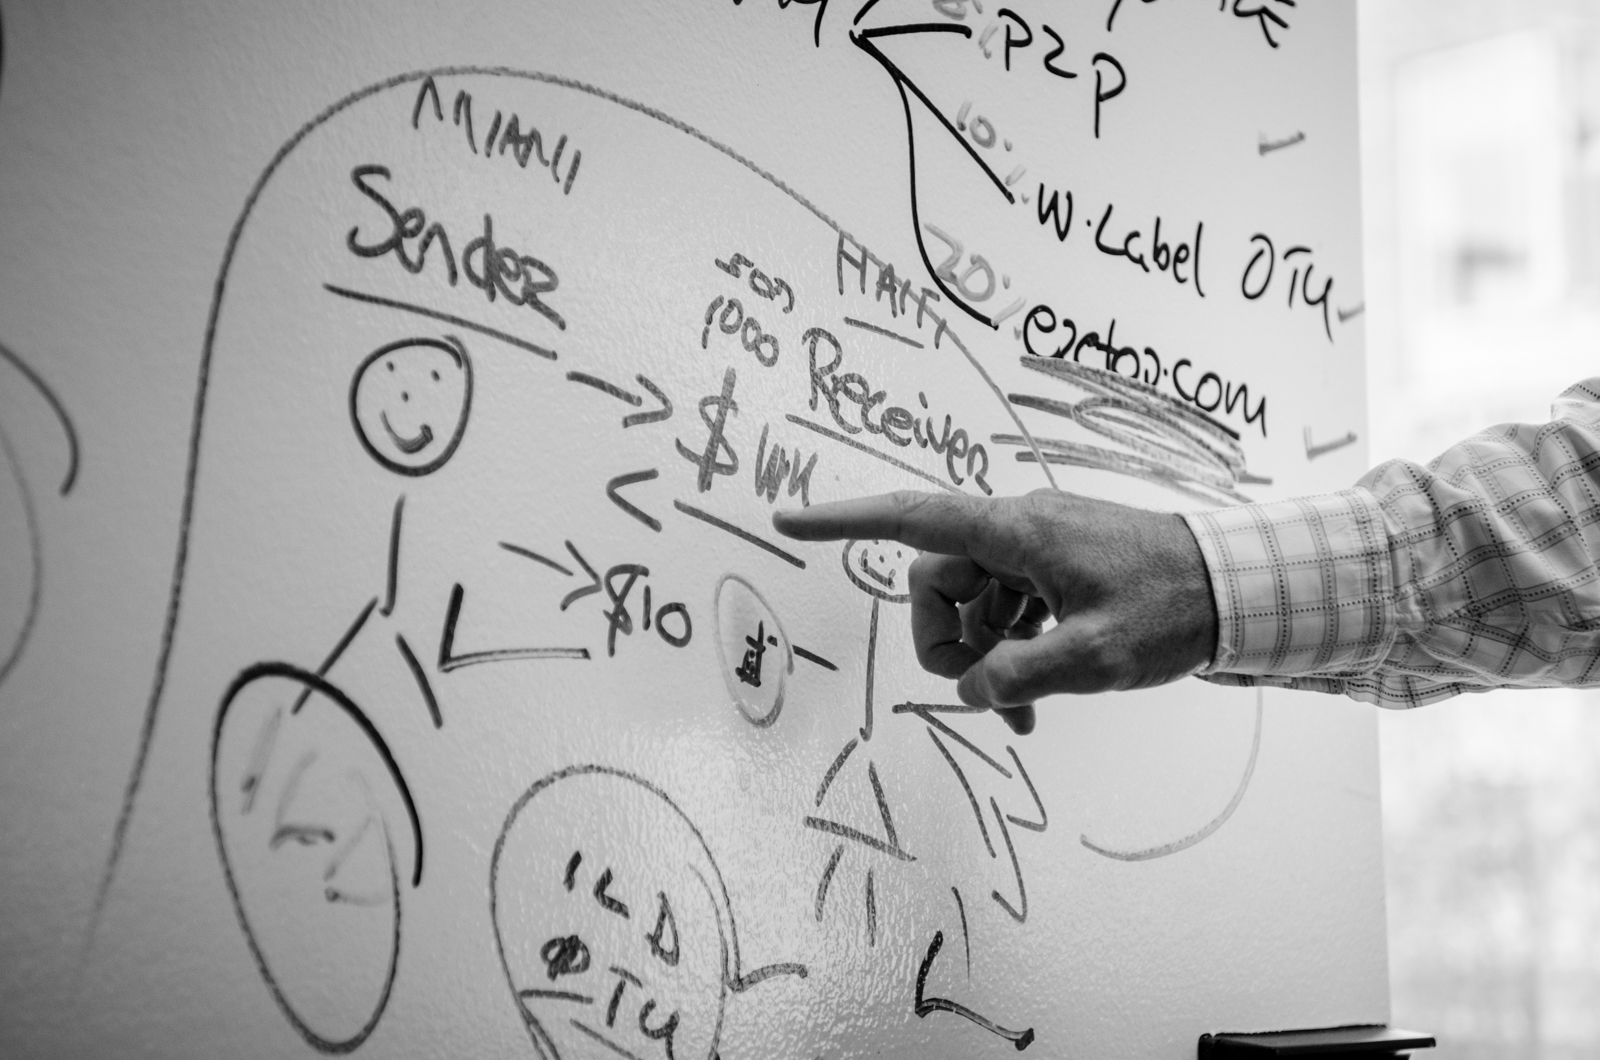 P2P
10%
W.Label OTU
20%
ezetop.com
MIAMI
Sender
HAITI
500
1000
Receiver
$
$10
ILD
OTU